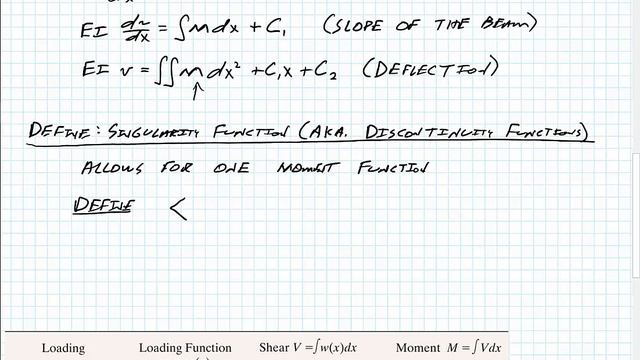 EI dv/dx = ∫Mdx + C₁ (SLOPE OF THE BEAM)
EI v = ∬Mdx² + C₁x + C₂ (DEFLECTION)
DEFINE: SINGULARITY FUNCTION (AKA. DISCONTINUITY FUNCTIONS)
ALLOWS FOR ONE MOMENT FUNCTION
DEFINE <
Loading Loading Function Shear V = ∫w(x)dx Moment M = ∫Vdx